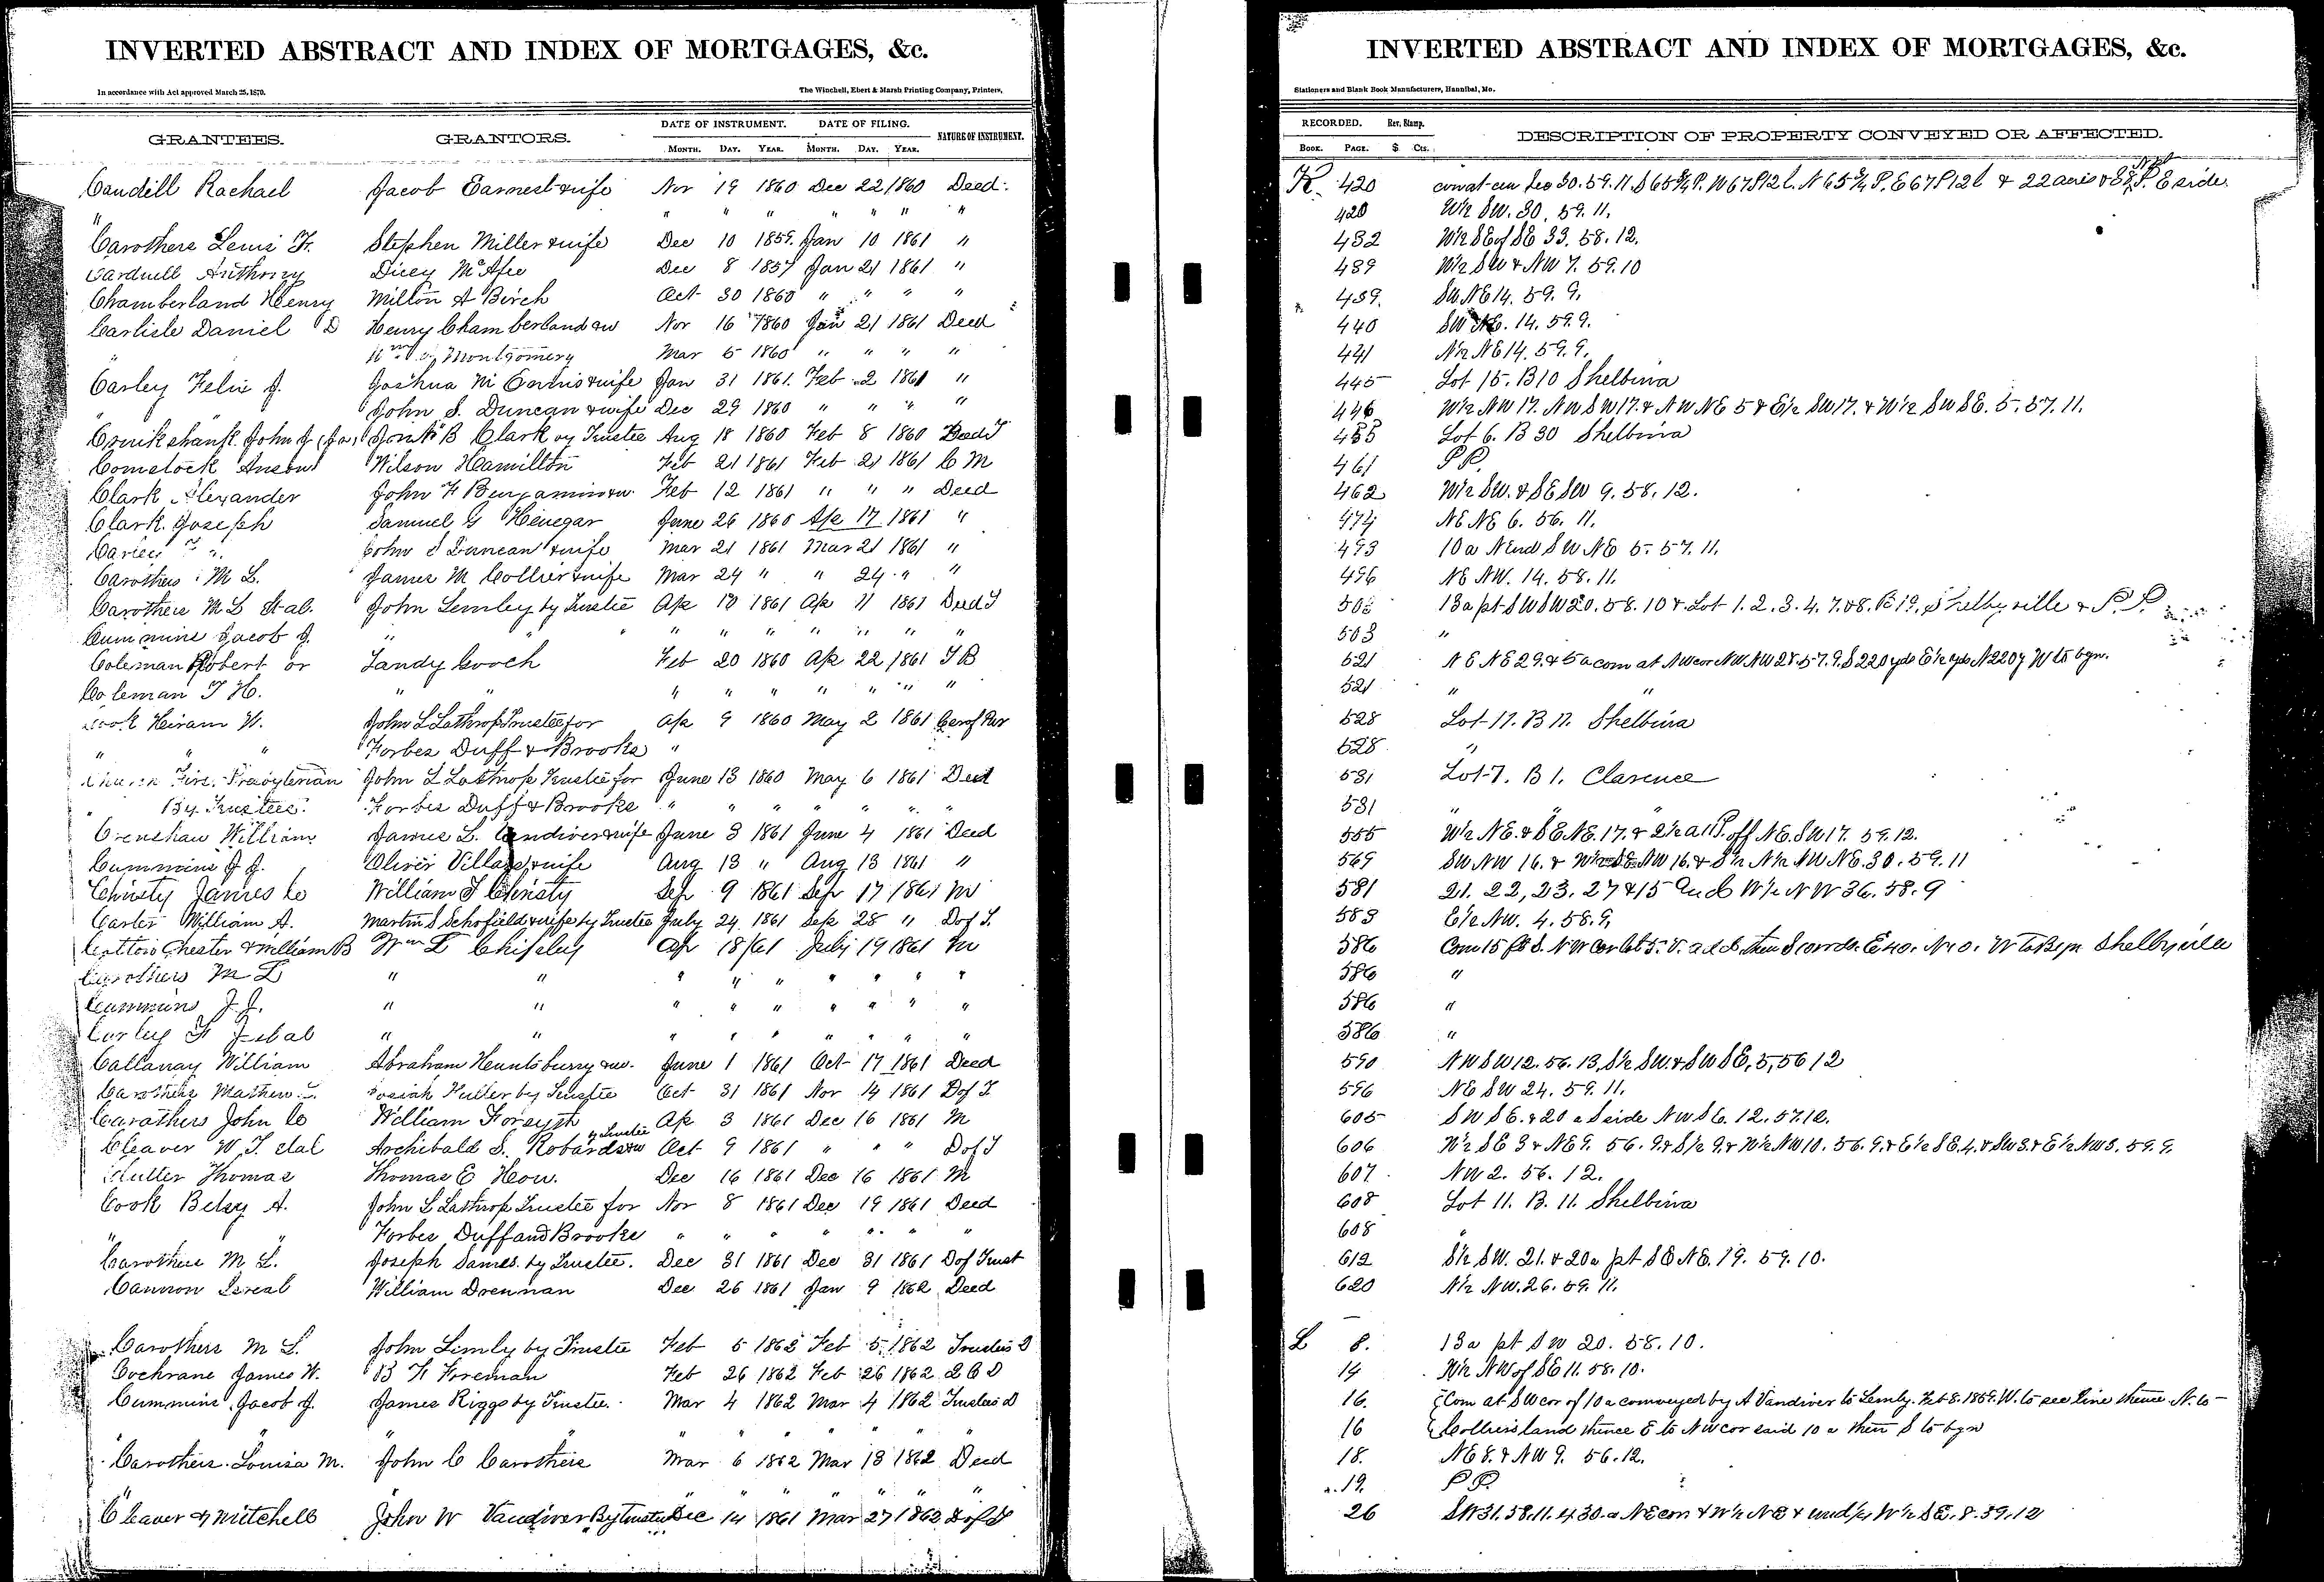 INVERTED ABSTRACT AND INDEX OF MORTGAGES, &c.
In accordance with Act approved March 25, 1870. The Winchell, Ebert & Marsh Printing Company, Printers,
GRANTEES. GRANTORS. DATE OF INSTRUMENT. DATE OF FILING. NATURE OF INSTRUMENT.
MONTH. DAY. YEAR. MONTH. DAY. YEAR.
Caudill Rachael Jacob Earnest & wife Nov 19 1860 Dec 22 1860 Deed
" " " " " " " "
Carothers Lewis F. Stephen Miller & wife Dec 10 1859 Jan 10 1861 "
Carduell Anthony Dicey McAfee Dec 8 1857 Jan 21 1861 "
Chamberland Henry Milton A Birch Oct 30 1860 " " " "
Carlisle Daniel D Henry Chamberland &w Nov 16 1860 Jan 21 1861 Deed
" Montgomery Mar 5 1860 " " " "
Carley Felix J. Joshua M & wife Jan 31 1861 Feb 2 1861 "
John S. Duncan & wife Dec 29 1860 " " " "
Cruikshank John J (Jr) B Clark by Trustee Aug 18 1860 Feb 8 1860
Comstock Anson Wilson Hamilton Feb 21 1861 Feb 21 1861 C M
Clark Alexander John F Benjamin &w. Feb 12 1861 " " " Deed
Clark Joseph Samuel G Henegar June 26 1860 Ap 17 1861 "
John S Duncan & wife Mar 21 1861 Mar 21 1861 "
Carothers M L. James M Collier & wife Mar 24 " " 24 " "
Carothers M L et al. John Lemley by Trustee Ap 10 1861 Ap 11 1861
Cummins Jacob J. " " " " " " " "
Coleman Robert or Sandy Gooch Feb 20 1860 Ap 22 1861 T B
Coleman T H. " " " " " " " " "
Cook Heiram W. John L Lathrop Trustee for Ap 9 1860 May 2 1861
" " " Forbes Duff & Brooks "
Church First Presbyterian John L Lathrop Trustee for June 13 1860 May 6 1861 Deed
" By Trustees. Forbes Duff & Brooks " " " " " " "
Crenshaw William James L. Vandiver & wife June 3 1861 June 4 1861 Deed
Cummins J J. Oliver Villars & wife Aug 13 " Aug 13 1861 "
Christy James Co William T Christy Sep 9 1861 Sep 17 1861 M
Carter William A. Martin S Schofield & wife by Trustee July 24 1861 Sep 28 " D of T.
Cotton Chester & William B Wm L Chipley Ap 18 /61 July 19 1861 M
Carothers M L " " " " " " " " "
Cummins J J. " " " " " " " " "
" " " " " " " " "
Callaway William Abraham &w. June 1 1861 Oct 17 1861 Deed
Carothers Mathew L. Josiah by Trustee Oct 31 1861 Nov 14 1861 D of T
Carathers John C William Forsyth Ap 3 1861 Dec 16 1861 M
Cleaver W. T. et al Archibald S. Robards &w by Trustee Oct 9 1861 " " " D of T
Thomas Thomas E Dec 16 1861 Dec 16 1861 M
Cook Betsy A. John L Lathrop Trustee for Nov 8 1861 Dec 19 1861 Deed
" " Forbes Duff and Brooks " " " " " " "
Carothers M L. Joseph Sames by Trustee. Dec 31 1861 Dec 31 1861 D of Trust
Cannon Isreal William Drennan Dec 26 1861 Jan 9 1862 Deed
Carothers M L. John Limly by Trustee Feb 5 1862 Feb 5 1862 Trustees D
Cochrane James W. B F Foreman Feb 26 1862 Feb 26 1862 2 C D
Cummins Jacob J. James Riggs by Trustee. Mar 4 1862 Mar 4 1862 Trustees D
" " " " " " " "
Carothers Louisa M. John C Carothers Mar 6 1862 Mar 13 1862 Deed
" " " " " " " "
Cleaver & Mitchell John W Vandiver By trustee Dec 14 1861 Mar 27 1862 D of T
INVERTED ABSTRACT AND INDEX OF MORTGAGES, &c.
Stationers and Blank Book Manufacturers, Hannibal, Mo.
RECORDED. Rev. Stamp. DESCRIPTION OF PROPERTY CONVEYED OR AFFECTED.
BOOK. PAGE. $ Cts.
K 420 com at cen Sec 30. 59. 11. S 65¾ P. W 67P 12 l. N 65¾ P. E 67P 12 l & 22 acres E side.
420 W½ SW. 30. 59. 11.
432 W½ SE of SE 33. 58. 12.
439 W½ SW & NW 7. 59. 10
439. SW NE 14. 59. 9.
440 SW NE. 14. 59. 9.
441 N½ NE 14. 59. 9.
445 Lot 15. B 10 Shelbina
446 W½ NW 17. NW SW 17. & NW NE 5 & E½ SW 17. & W½ SW SE. 5. 57. 11.
455 Lot 6. B 30 Shelbina
461 P P.
462 W½ SW. & SE SW 9. 58. 12.
474 NE NE 6. 56. 11.
493 10 a N end SW NE 5. 57. 11.
496 NE NW. 14. 58. 11.
503 13 a pt SW SW 20. 58. 10 & Lot 1. 2. 3. 4. 7. & 8. B 19. Shelbyville & P. P.
503 "
521 NE NE 29. & 5 a com at NW cor NW NW 28. 57. 9. S 220 yds E ½ yds N 220 y W to bgn.
521 " "
528 Lot 17. B 17. Shelbina
528 "
531 Lot 7. B 1. Clarence
531 " "
555 W½ NE. & SE NE. 17. & 2½ a off NE. SW 17. 59. 12.
569 SW NW 16. & NW 16. & S½ N½ NW NE. 30. 59. 11
581 21. 22, 23. 27 & 15 W½ NW 36. 58. 9
583 E½ NW. 4. 58. 9.
586 Com 15 ft S. NW Cor lot 5. then S E 40. W to Bgn Shelbyville
586 "
586 "
586 "
590 NW SW 12. 56. 13. S½ SW. & SW SE. 5, 56 12
596 NE SW 24. 59. 11.
605 SW SE. & 20 a S side NW SE. 12. 57. 12.
606 W½ SE 3 & NE 9. 56. 9. & S½ 9. & W½ NW 10. 56. 9. & E½ SE. 4. & SW 3. & E½ NW 3. 59. 9.
607 NW 2. 56. 12.
608 Lot 11. B. 11. Shelbina
608 "
612 S½ SW. 21. & 20 a pt SE NE. 19. 59. 10.
620 N½ NW. 26. 59. 11.
L 8. 13 a pt SW 20. 58. 10.
14 W½ NW of SE 11. 58. 10.
16. Com at SW cor of 10 a conveyed by A Vandiver to Lemly. Feb 8. 1859. W. to sec line thence N. to
16 Colliers land thence E to NW cor said 10 a then S to bgn
18. NE 8. & NW 9. 56. 12.
19. P P.
26 SW 31. 58. 11. & 30. a NE corn & W½ NE & und ½ W½ SE. 8. 59. 12